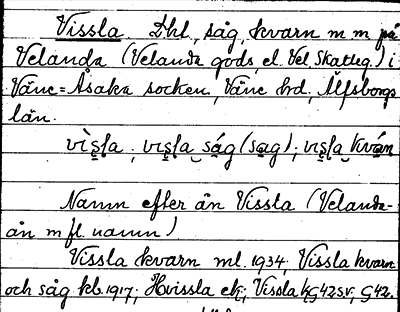 Vissla. Dhl, såg, kvarn m m på
Velanda (Velanda gods, el. Vel. Skatteg.) i
Väne=Åsaka socken, Väne hd, Älfsborgs
län.
vìs̥l̥a ; vis̥l̥a såg (sag) ; vis̥l̥a kván
Namn efter ån Vissla (Velanda-
ån m fl. namn)
Vissla kvarn ml. 1934, Vissla kvarn
och såg kb. 1917; Hvissla ek; Vissla G42SV, G42.